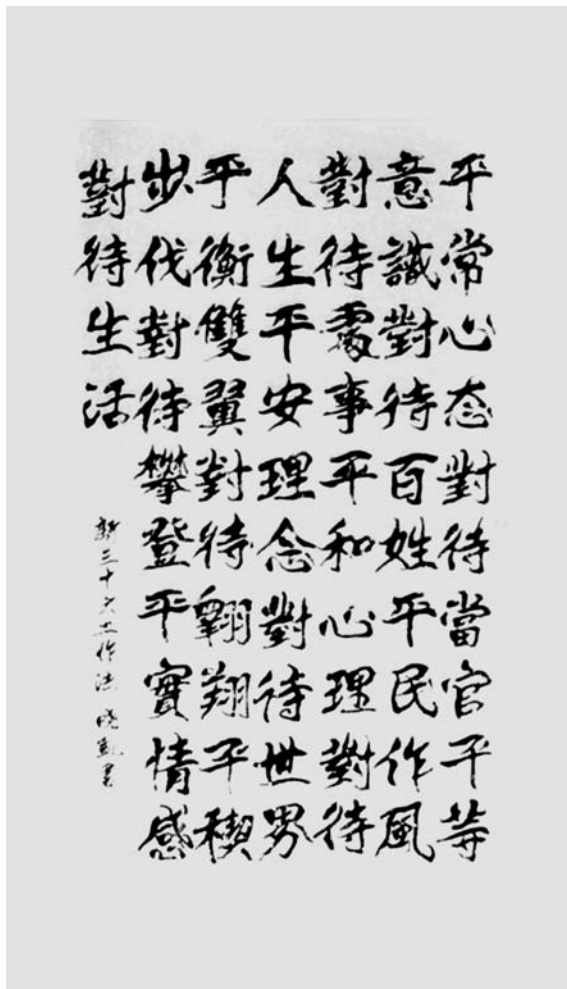 平常心态對待當官平等
意識對待百姓平民作風
對待處事平和心理對待
人生平安理念對待世界
平衡雙翼對待翱翔平穩
步伐對待攀登平實情感
對待生活
新三十六工作法 晓凱書